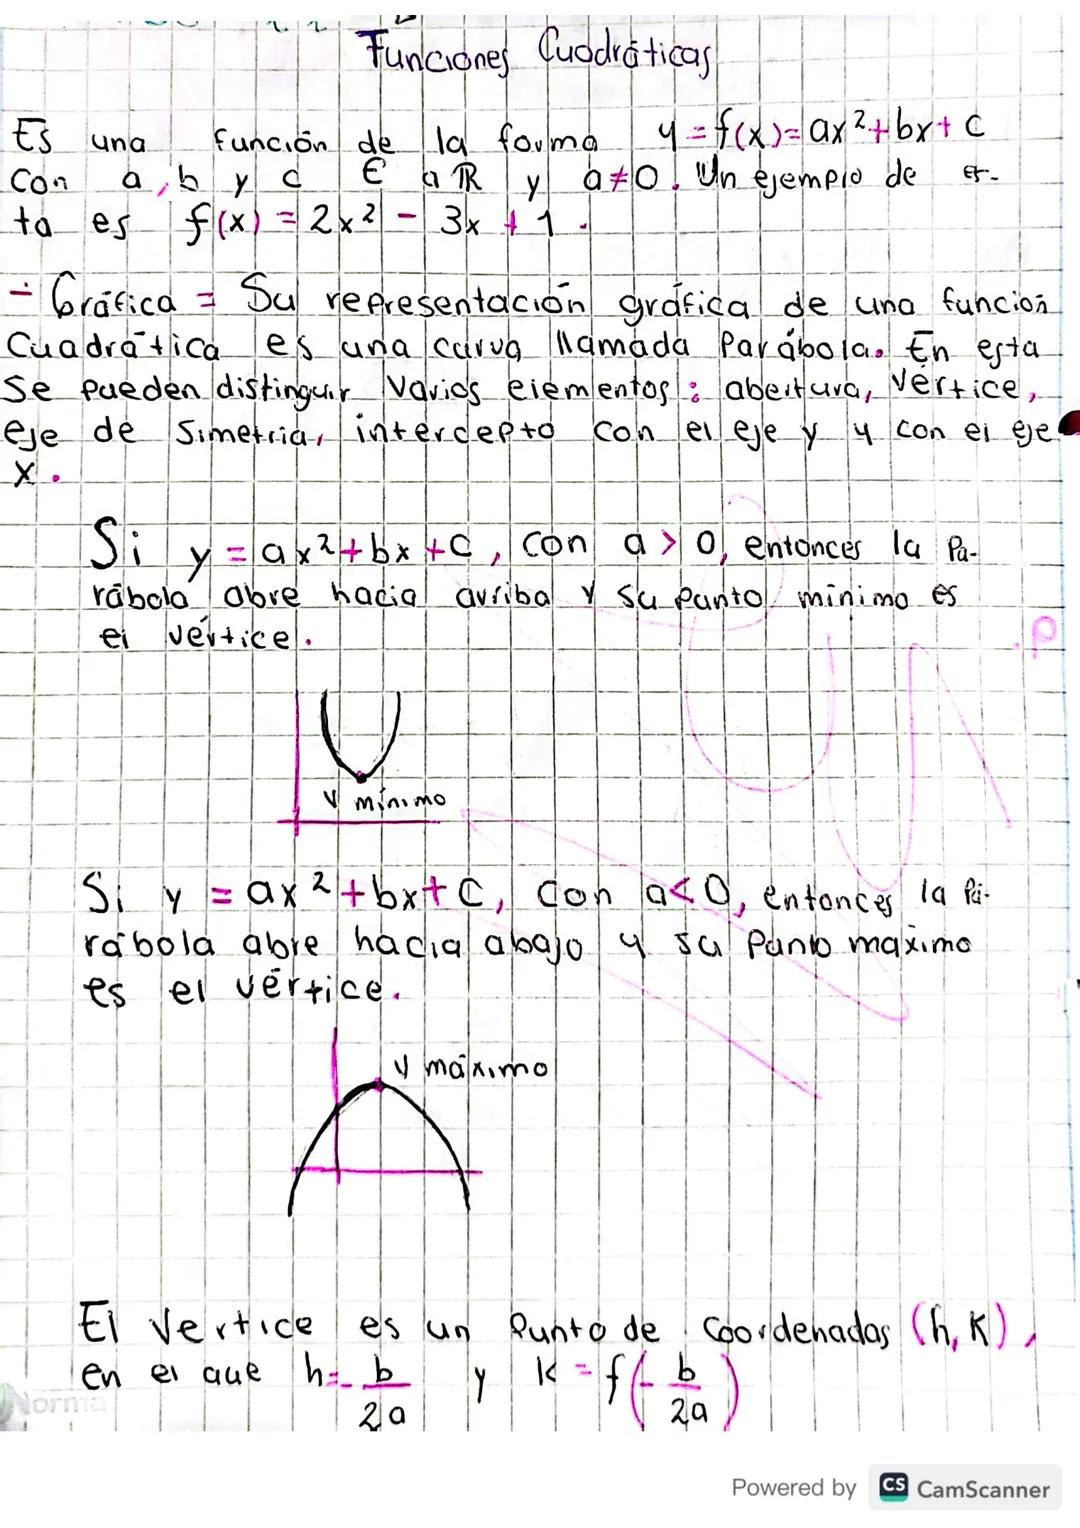 Funciones Cuadráticas
Es una función de la forma y = f(x) = ax² + bx + c
con a, b y c ∈ a ℝ y a ≠ 0. Un ejemplo de es-
ta es f(x) = 2x² - 3x + 1.
- Gráfica = Su representación gráfica de una función
Cuadrática es una curva llamada Parábola. En esta
Se pueden distinguir Varios elementos: abertura, Vértice,
eje de Simetría, intercepto con el eje y y con el eje
X.
Si y = ax² + bx + c, con a > 0, entonces la Pa-
rábola abre hacia arriba y su punto mínimo es
el vértice.
V mínimo
Si y = ax² + bx + c, con a < 0, entonces la Pa-
rábola abre hacia abajo y su Punto máximo
es el vértice.
V máximo
El Vertice es un Punto de Coordenadas (h, K),
en el que h = - b/2a y K = f(- b/2a)
Norma
Powered by CS CamScanner